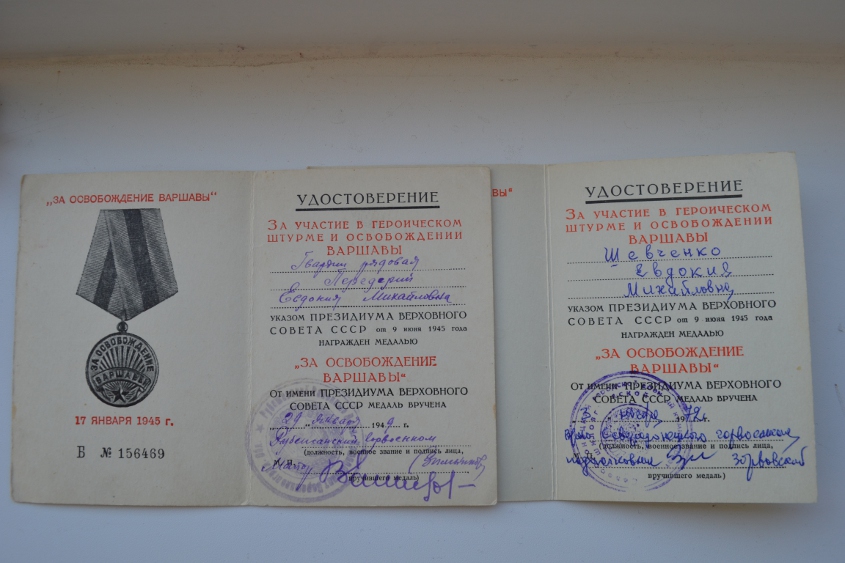 „ЗА ОСВОБОЖДЕНИЕ ВАРШАВЫ"
ЗА ОСВОБОЖДЕНИЕ
ВАРШАВЫ
17 ЯНВАРЯ 1945 г.
Б № 156469
УДОСТОВЕРЕНИЕ
ЗА УЧАСТИЕ В ГЕРОИЧЕСКОМ
ШТУРМЕ И ОСВОБОЖДЕНИИ
ВАРШАВЫ
Гвардии рядовая
Передерий
Евдокия Михайловна
УКАЗОМ ПРЕЗИДИУМА ВЕРХОВНОГО
СОВЕТА СССР от 9 июня 1945 года
НАГРАЖДЕН МЕДАЛЬЮ
„ЗА ОСВОБОЖДЕНИЕ
ВАРШАВЫ"
ОТ ИМЕНИ ПРЕЗИДИУМА ВЕРХОВНОГО
СОВЕТА СССР МЕДАЛЬ ВРУЧЕНА
29 января 1949 г.
(должность, военное звание и подпись лица,
вручившего медаль)
Ы"
УДОСТОВЕРЕНИЕ
ЗА УЧАСТИЕ В ГЕРОИЧЕСКОМ
ШТУРМЕ И ОСВОБОЖДЕНИИ
ВАРШАВЫ
Шевченко
Евдокия
Михайловна
УКАЗОМ ПРЕЗИДИУМА ВЕРХОВНОГО
СОВЕТА СССР от 9 июня 1945 года
НАГРАЖДЕН МЕДАЛЬЮ
„ЗА ОСВОБОЖДЕНИЕ
ВАРШАВЫ"
ОТ ИМЕНИ ПРЕЗИДИУМА ВЕРХОВНОГО
СОВЕТА СССР МЕДАЛЬ ВРУЧЕНА
(должность, военное звание и подпись лица,
вручившего медаль)